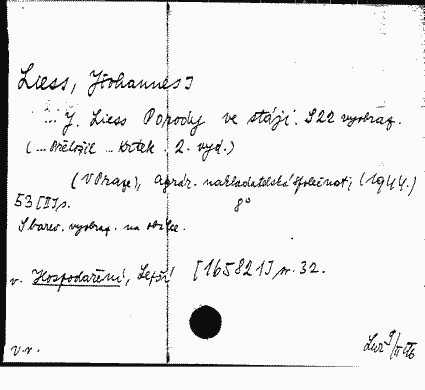 Liess, J[ohannes]
... J. Liess Porody ve stáji. S 22 vyobraz.
(... Přeložil ... Krtek. 2. vyd.)
(V Praze), Agrár. nakladatelská společnost, (1944.)
53 [II] s. 8°
S barev. vyobraz. na obálce.
v. Hospodaření, Lepší [165821] nr. 32.
v.r.